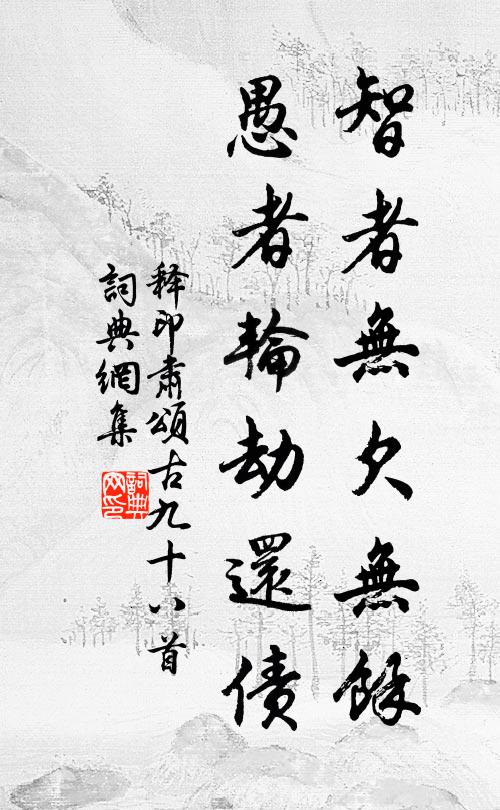 智者無欠無餘
愚者輪劫還債
释印肅頌古九十八首
詞典網集
詞典網印